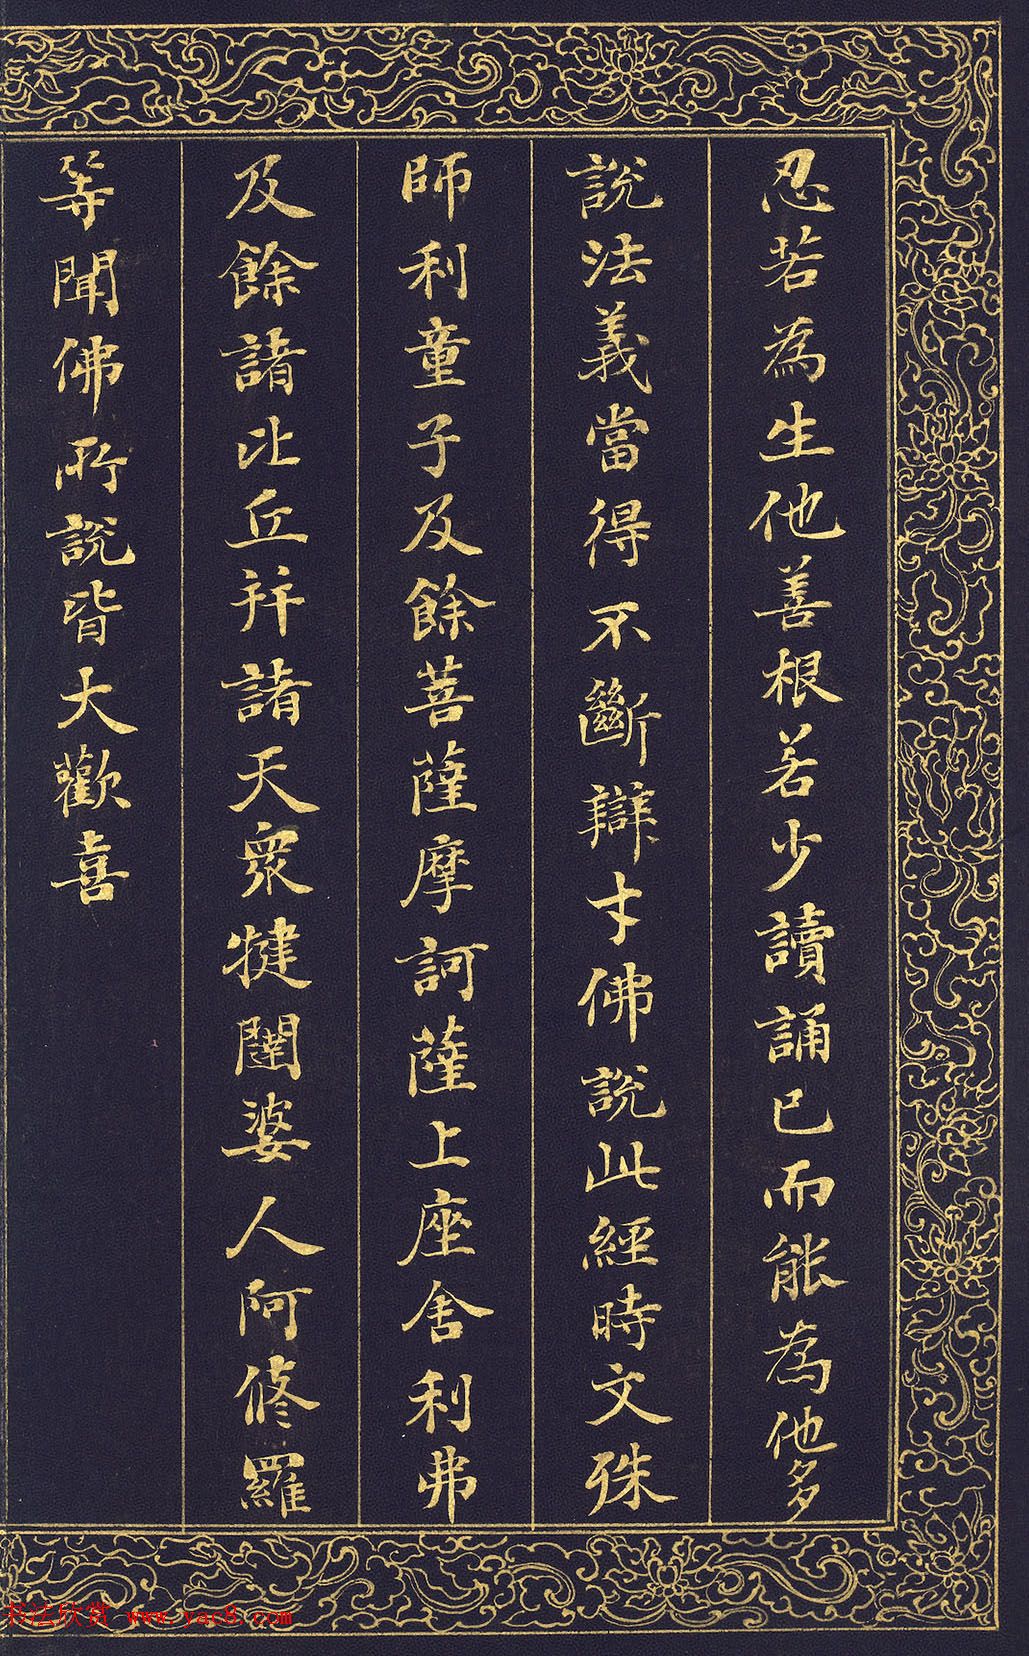 忍若為生他善根若少讀誦已而能為他多
說法義當得不斷辯才佛說此經時文殊
師利童子及餘菩薩摩訶薩上座舍利弗
及餘諸比丘并諸天眾犍闥婆人阿修羅
等聞佛所說皆大歡喜
书法欣赏 www.yac8.com